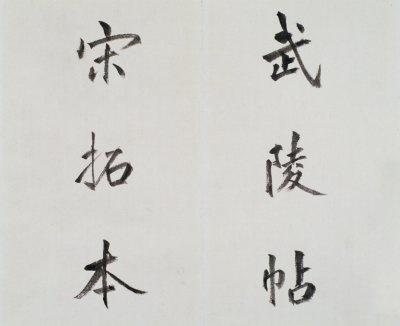 武陵帖
宋拓本